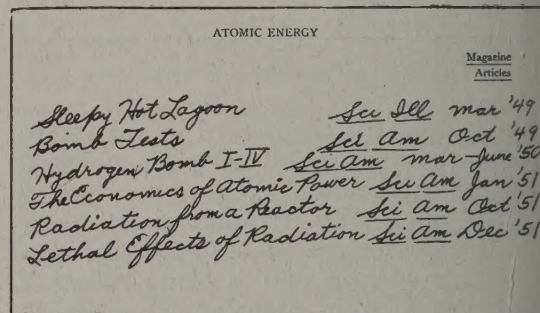 ATOMIC ENERGY
Magazine
Articles
Sleepy Hot Lagoon Sci Ill Mar '49
Bomb Tests Sci Am Oct '49
Hydrogen Bomb I-IV Sci Am Mar-June '50
The Economics of Atomic Power Sci Am Jan '51
Radiation from a Reactor Sci Am Oct '51
Lethal Effects of Radiation Sci Am Dec '51